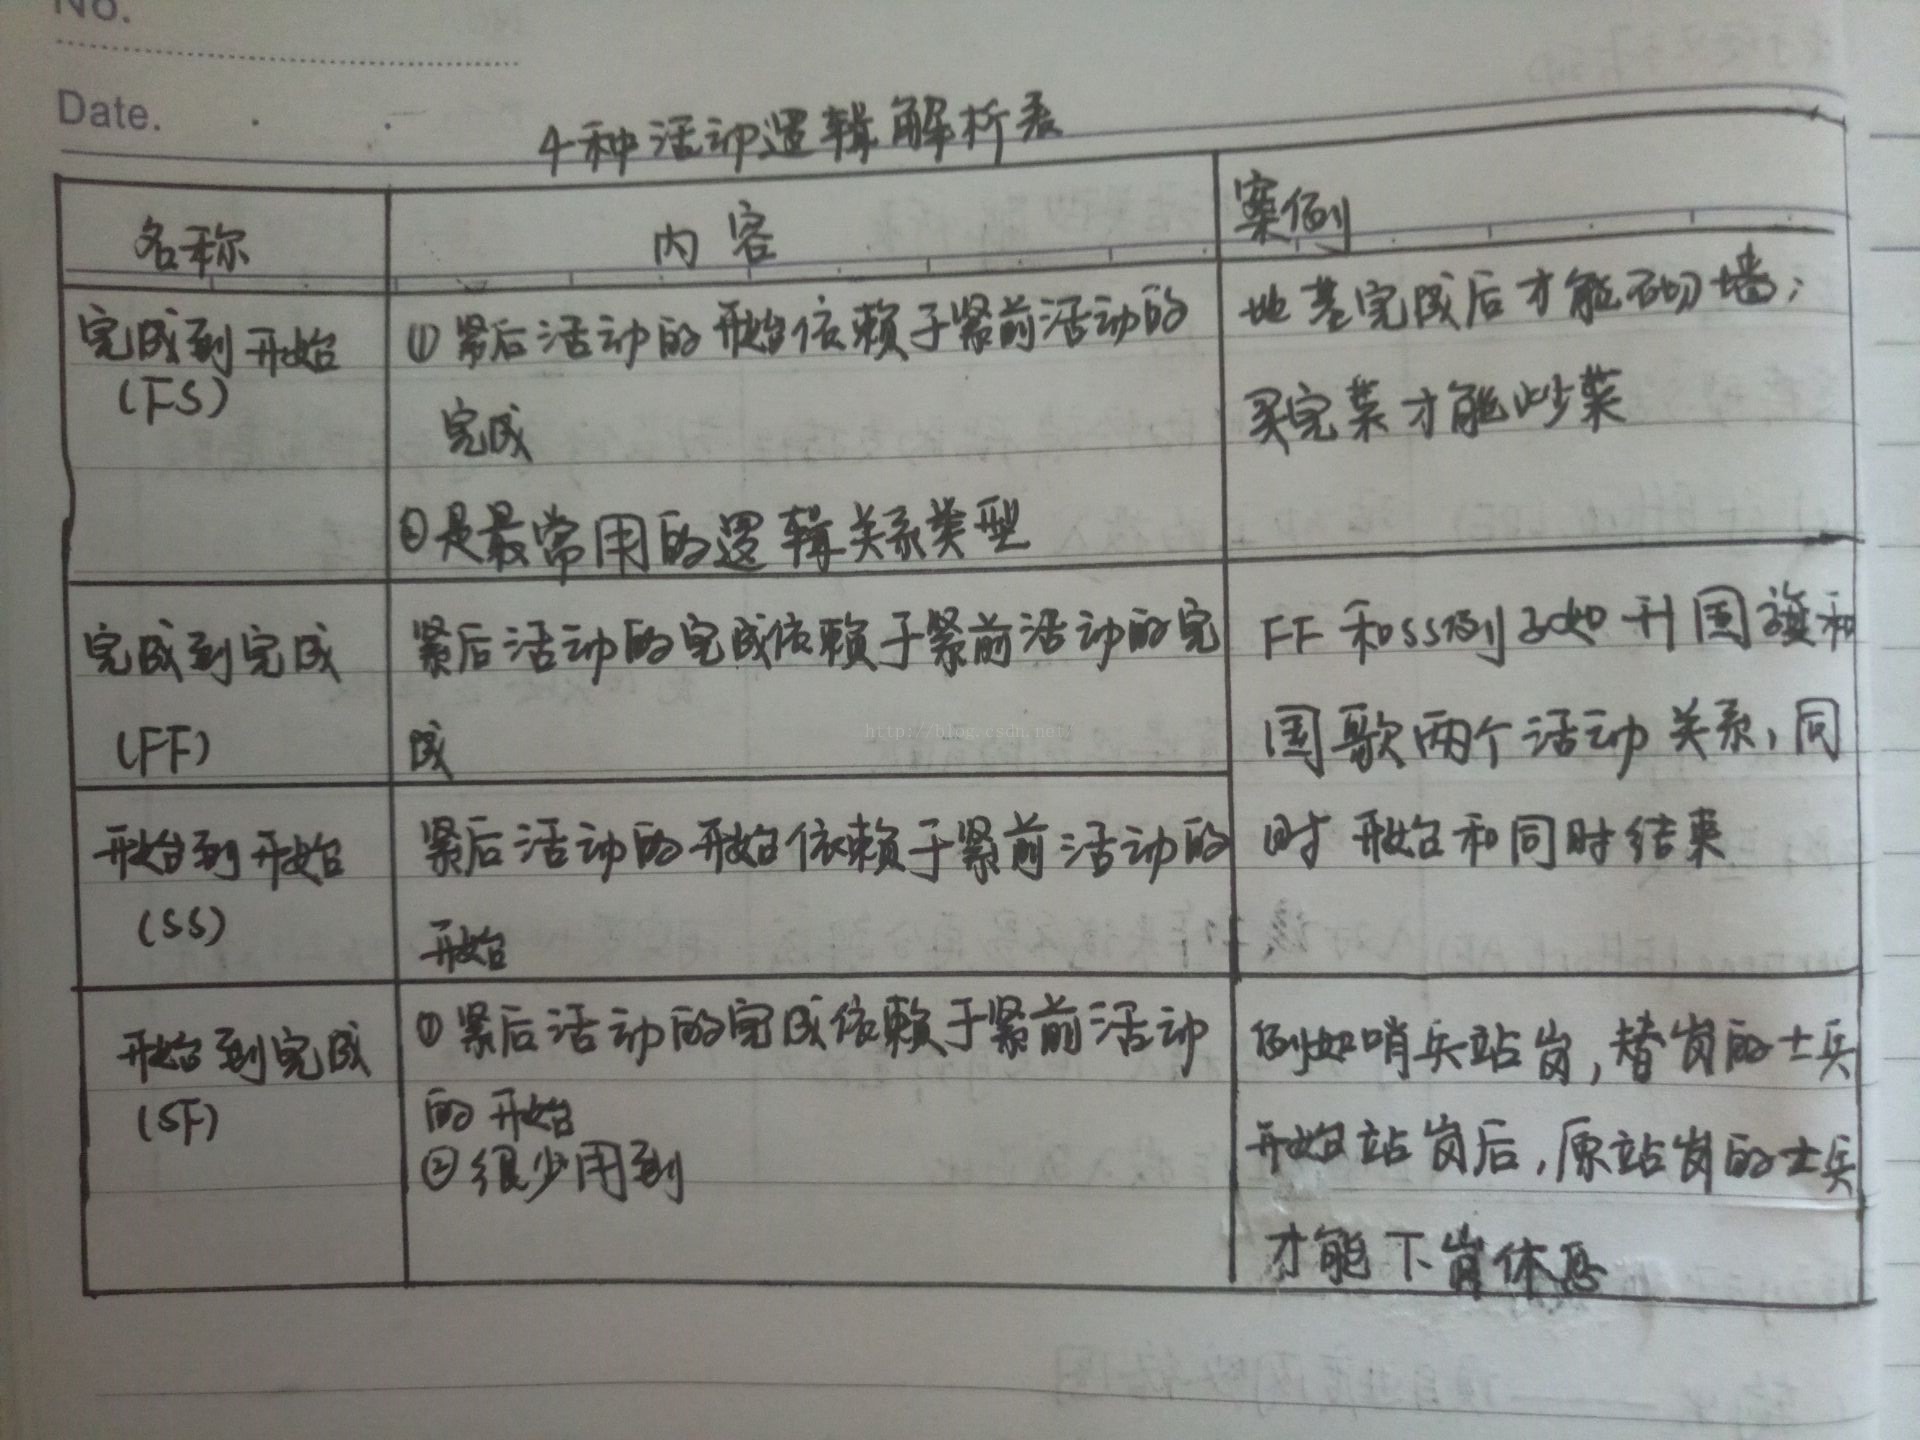 No.
Date.
4种活动逻辑解析表
名称
内容
案例
完成到开始
(FS)
① 紧后活动的开始依赖于紧前活动的
完成
②是最常用的逻辑关系类型
地基完成后才能砌墙;
买完菜才能炒菜
完成到完成
(FF)
紧后活动的完成依赖于紧前活动的完
成
FF和SS例子如升国旗和
国歌两个活动关系,同
时开始和同时结束
开始到开始
(SS)
紧后活动的开始依赖于紧前活动的
开始
开始到完成
(SF)
①紧后活动的完成依赖于紧前活动
的开始
②很少用到
例如哨兵站岗,替岗的士兵
开始站岗后,原站岗的士兵
才能下岗休息
http://blog.csdn.net/